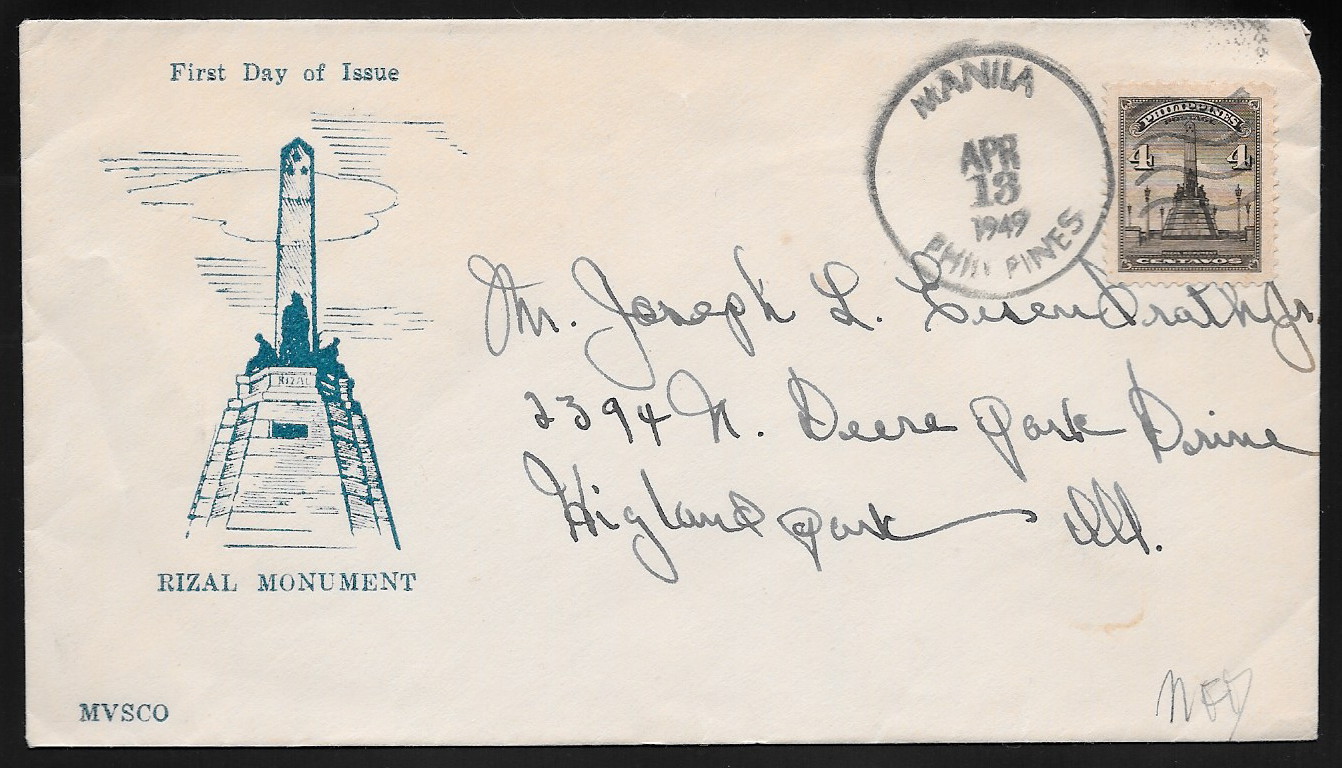 First Day of Issue
MANILA
APR
13
1949
PHILIPPINES
PHILIPPINES
4 4
RIZAL MONUMENT
CENTAVOS
Mr. Joseph L. Eisendrath Jr.
2394 N. Deere Park Drive
Higland Park Ill.
RIZAL
RIZAL MONUMENT
MVSCO